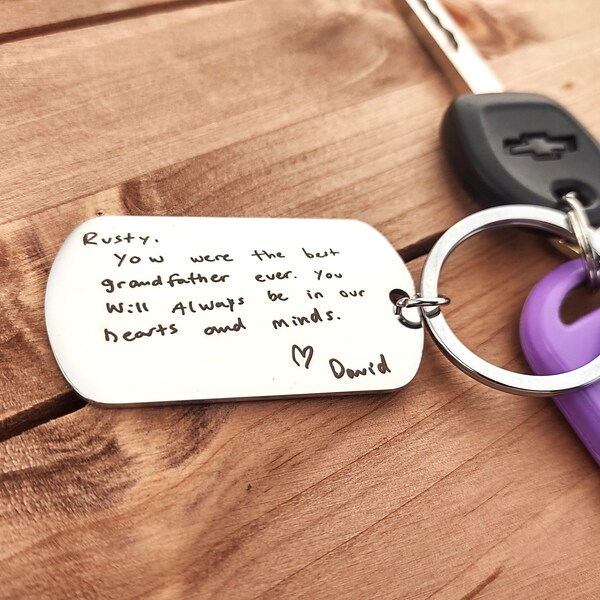 Rusty,
You were the best
grandfather ever. You
will Always be in our
hearts and minds.
♡ David